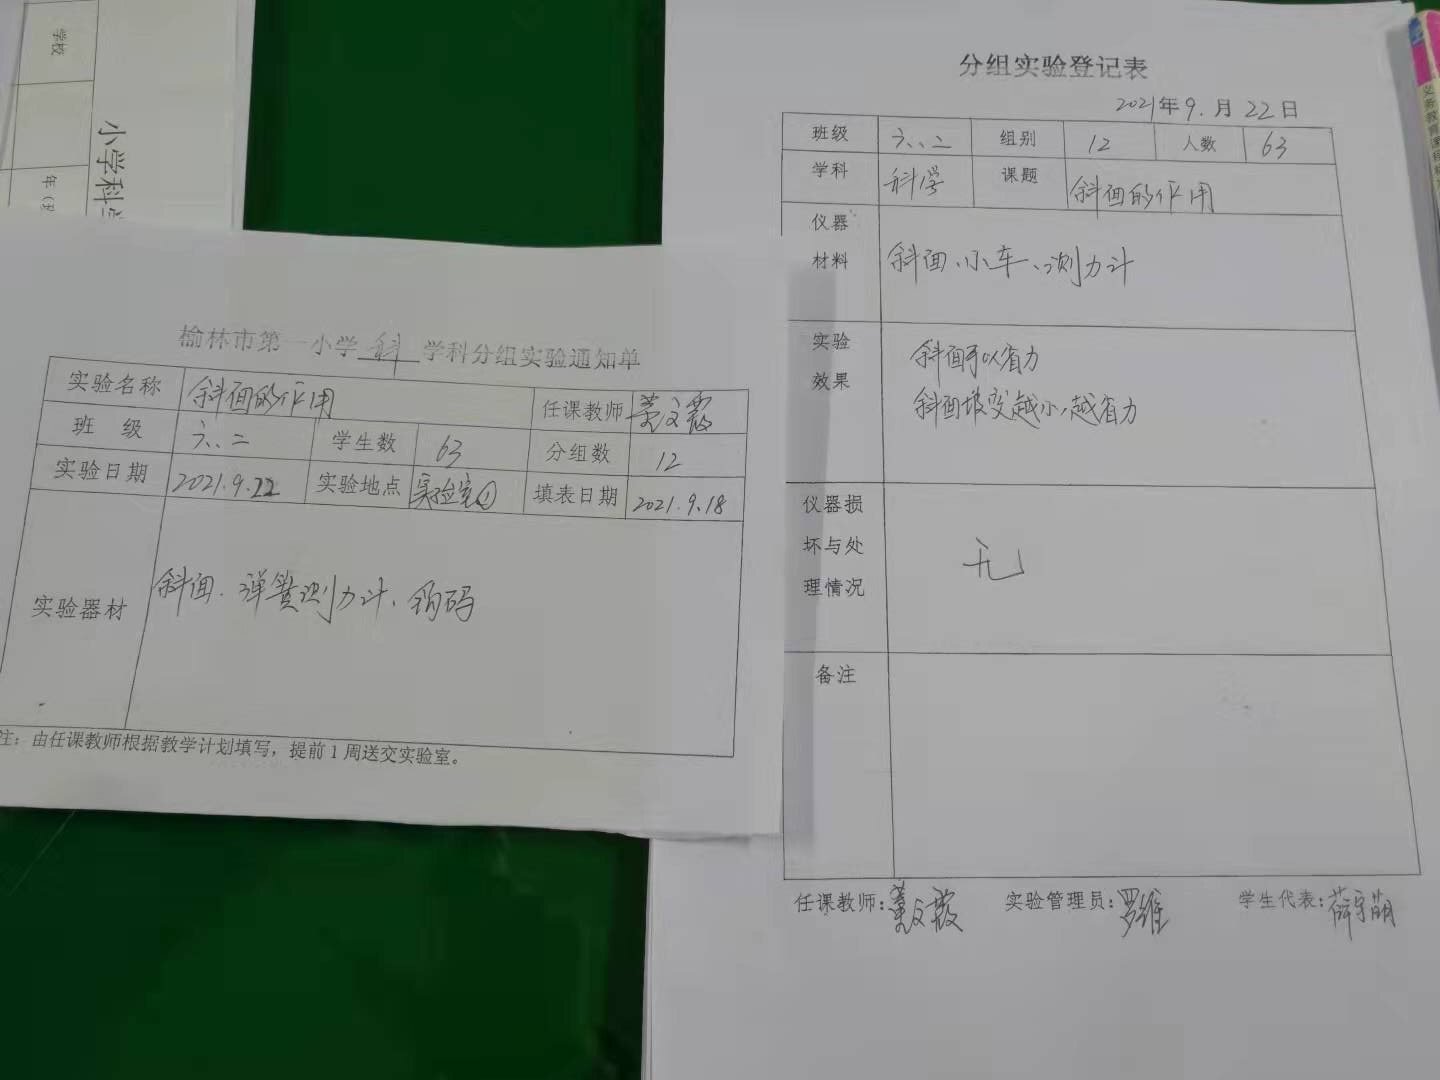 学校
年(班
小学科学
榆林市第一小学 科 学科分组实验通知单
实验名称 斜面的作用 任课教师 董文霞
班 级 六、二 学生数 63 分组数 12
实验日期 2021.9.22 实验地点 实验室① 填表日期 2021.9.18
实验器材 斜面、弹簧测力计、钩码
注：由任课教师根据教学计划填写，提前1周送交实验室。
分组实验登记表
2021年9.月22日
班级 六、二 组别 12 人数 63
学科 科学 课题 斜面的作用
仪器
材料 斜面、小车、测力计
实验 斜面可以省力
效果 斜面坡度越小,越省力
仪器损
坏与处 无
理情况
备注
任课教师：董文霞 实验管理员：罗维 学生代表：薛宇萌